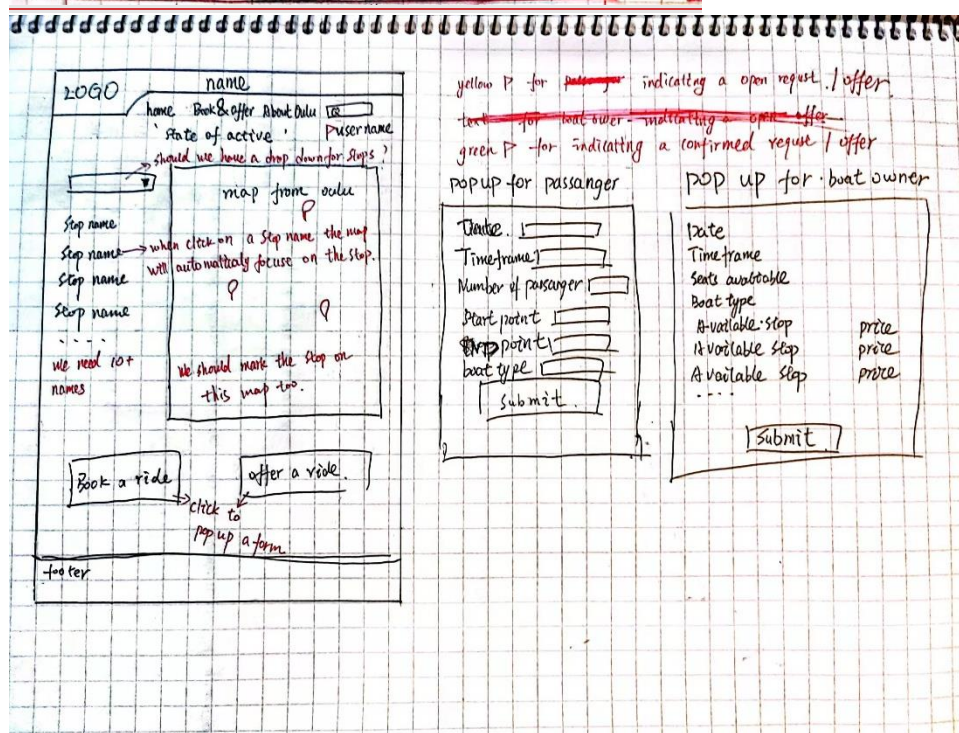 LOGO
name
home Book & offer About Oulu
'State of active'
username
should we have a drop down for stops?
map from oulu
Stop name
Stop name
Stop name
Stop name
.....
when click on a stop name the map
will automattcaly focuse on the stop.
we need 10+
names
we should mark the stop on
this map too.
Book a ride
offer a ride.
click to
pop up a form
footer
yellow P for passenger indicating a open requst. / offer
text for boat ower indicating a open offer
green P for indicating a confirmed requse / offer
popup for passanger
Timeframe
Number of passanger
Start point
point
boat type
Submit.
pop up for boat owner
Date
Timeframe
Seats avabtable
Boat type
Available stop price
Available stop price
Available stop price
....
Submit